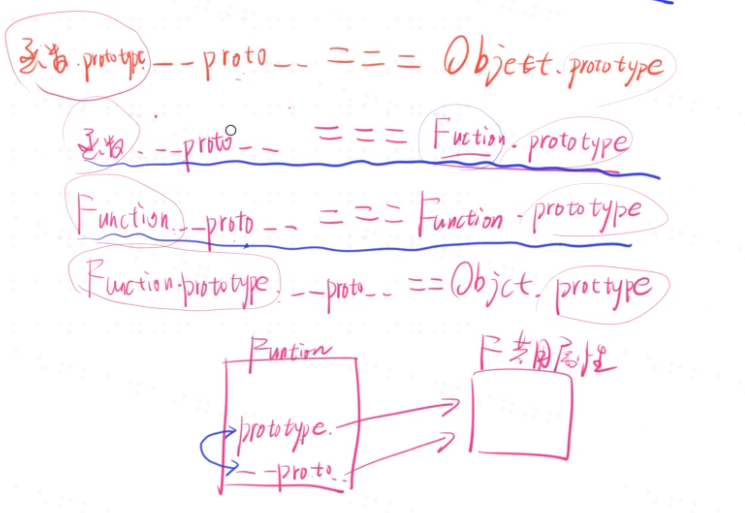 函数.prototype.__proto__ === Object.prototype
函数.__proto__ === Fuction.prototype
Function.__proto__ === Function.prototype
Function.prototype.__proto__ == Objct.prottype
Funtion
F共用属性
prototype.
__proto__